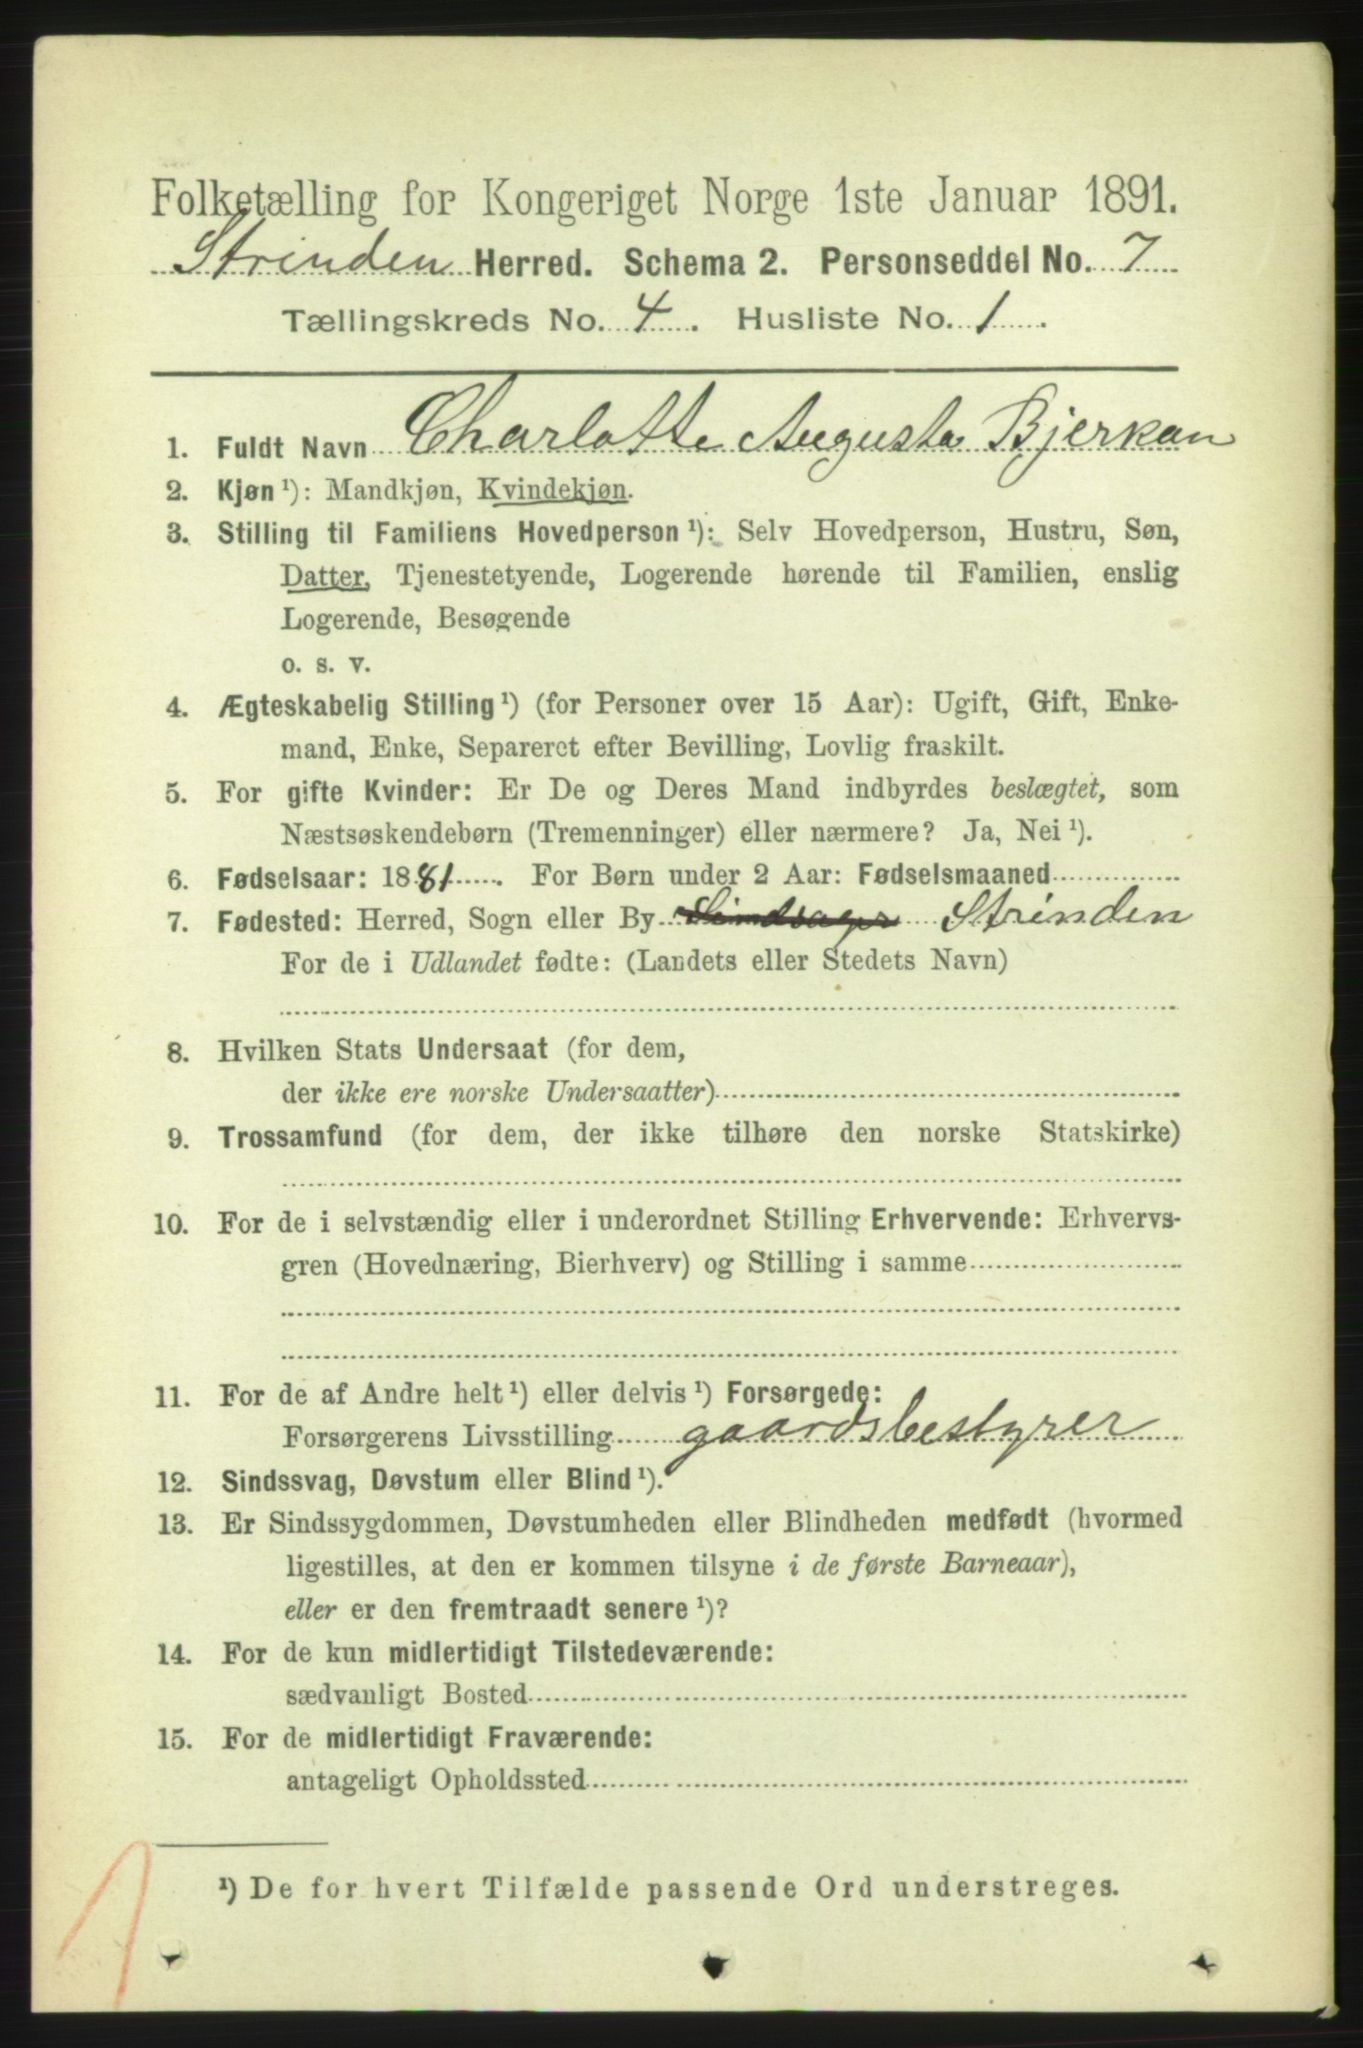 Folketælling for Kongeriget Norge 1ste Januar 1891.
Strinden Herred. Schema 2. Personseddel No. 7
Tællingskreds No. 4. Husliste No. 1.
1. Fuldt Navn Charlotte Augusta Bjerkan
2. Kjøn ¹): Mandkjøn, Kvindekjøn.
3. Stilling til Familiens Hovedperson ¹): Selv Hovedperson, Hustru, Søn,
Datter, Tjenestetyende, Logerende hørende til Familien, enslig
Logerende, Besøgende
o. s. v.
4. Ægteskabelig Stilling ¹) (for Personer over 15 Aar): Ugift, Gift, Enke-
mand, Enke, Separeret efter Bevilling, Lovlig fraskilt.
5. For gifte Kvinder: Er De og Deres Mand indbyrdes beslægtet, som
Næstsøskendebørn (Tremenninger) eller nærmere? Ja, Nei ¹).
6. Fødselsaar: 1881. For Børn under 2 Aar: Fødselsmaaned
7. Fødested: Herred, Sogn eller By Strinden
For de i Udlandet fødte: (Landets eller Stedets Navn)
8. Hvilken Stats Undersaat (for dem,
der ikke ere norske Undersaatter)
9. Trossamfund (for dem, der ikke tilhøre den norske Statskirke)
10. For de i selvstændig eller i underordnet Stilling Erhvervende: Erhvervs-
gren (Hovednæring, Bierhverv) og Stilling i samme
11. For de af Andre helt ¹) eller delvis ¹) Forsørgede:
Forsørgerens Livsstilling gaardsbestyrer
12. Sindssvag, Døvstum eller Blind ¹).
13. Er Sindssygdommen, Døvstumheden eller Blindheden medfødt (hvormed
ligestilles, at den er kommen tilsyne i de første Barneaar),
eller er den fremtraadt senere ¹)?
14. For de kun midlertidigt Tilstedeværende:
sædvanligt Bosted
15. For de midlertidigt Fraværende:
antageligt Opholdssted
¹) De for hvert Tilfælde passende Ord understreges.